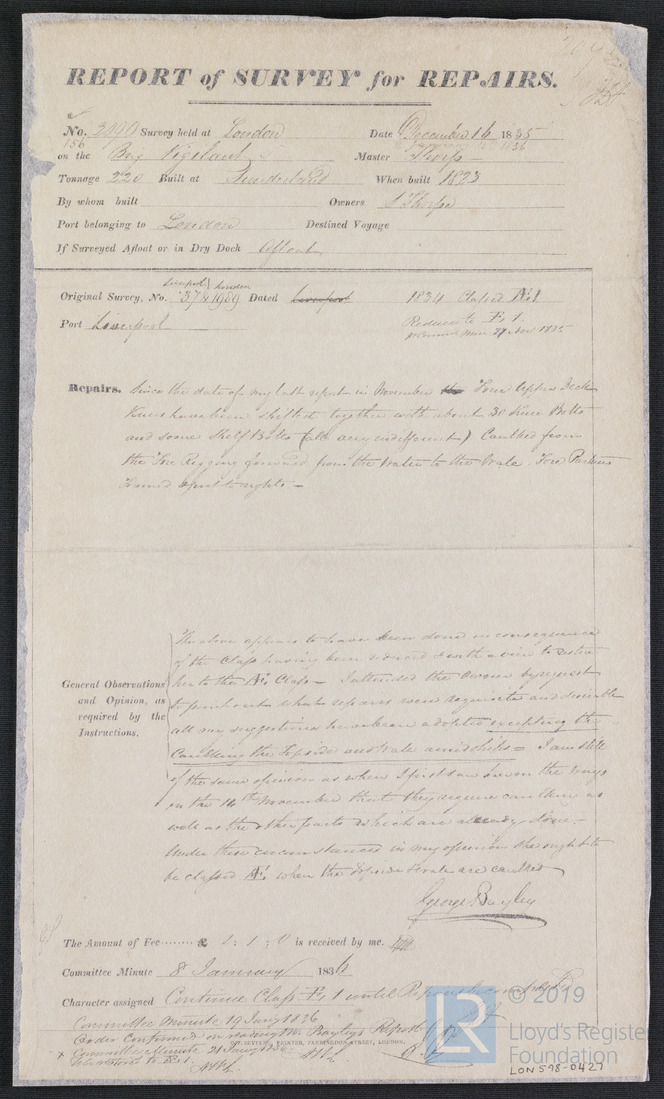 REPORT of SURVEY for REPAIRS.
No. 3090 Survey held at London Date December 16 1835
156
on the Brig Vigilant Master Thorp
Tonnage 220 Built at Sunderland When built 1823
By whom built Owners J Thorpe
Port belonging to London Destined Voyage
If Surveyed Afloat or in Dry Dock Afloat
Liverpool London
Original Survey, No. 378 1989 Dated Liverpool 1834 Classed Æ1
Port Liverpool Reduced to E.1.
Nov 1835
Repairs. Since the date of my last report in November Fore Upper Deck
Knees have been shifted together with about 30 Knee Bolts
and some Shelf Bolts (all very indifferent) Caulked from
the Fore Rigging forward from the Water to the Wale. Fore
to rights —
The above appears to have been done in consequence
of the Class having been reduced & with a view to restore
her to the Æ1 Class — I attended the Owner by request
to point out what repairs were requisite and desirable
all my suggestions have been adopted excepting the
caulking the topside and wale amidships = I am still
of the same opinion as when I first saw her on the Ways
on the 14th November that they require caulking as
well as the other parts which are already done —
Under these circumstances in my opinion she ought to
be classed Æ1 when the topside & wale are caulked
General Observations
and Opinion, as
required by the
Instructions.
George Bayley
The Amount of Fee........ £ 1 : 1 : 0 is received by me.
Committee Minute 8 January 1836
Character assigned Continue Class E 1 until
Committee Minute 19 Jany 1836
Order Confirmed on reading Mr. Bayley's Report
SEYFANG, PRINTER, FARRINGDON STREET, LONDON.
x Committee Minute 21 Jany 1836
© 2019
LR
Lloyd's Register
Foundation
LON598-0427